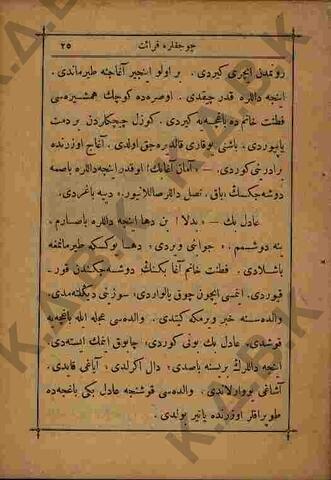 چوجقلره قرائت
٢٥
روتمدن ایچری کیردی . بر اولو اینجیر آغاجنه طیرماندی .
اینجه داللره قدر چیقدی . اوصره‌ده کوچك همشیره‌سی
فطنت خانم ده باغچه‌یه کیردی . کوزل چیچکلردن بر دمت
یاپیوردی . باشنی یوقاری قالدیره‌جق اولدی . آغاج اوزرنده
برادرینی کوردی — آمان آغابك ! اوقدر اینجه داللره باصمه
دوشه‌جکسك ، باق ، نصل داللر صاللانیور ، دییه باغردی .
عادل بك — بدلا ! بن دها اینجه داللره باصارم .
ینه دوشمم . جوابنی ویردی . دها یوکسکه طیرمانمغه
باشلادی . فطنت خانم آغا بکنك دوشه‌جکندن قور-
قیوردی . ایتمسی ایچون چوق یالواردی ، سوزینی دیکلتمه‌دی .
والده‌سنه خبر ویرمکه کیتدی . والده‌سی عجله ایله باغچه‌یه
قوشدی . عادل بك بونی کوردی ، چابوق اینمك ایسته‌دی .
اینجه داللرك بریسنه باصدی ، دال اکرلدی ، آیاغی قایدی .
آشاغی یووارلاندی . والده‌سی قوشنجه عادل بکی باغچه‌ده
طوپراقلر اوزرنده یاتیر بولدی .
K.A.D.B.V.K